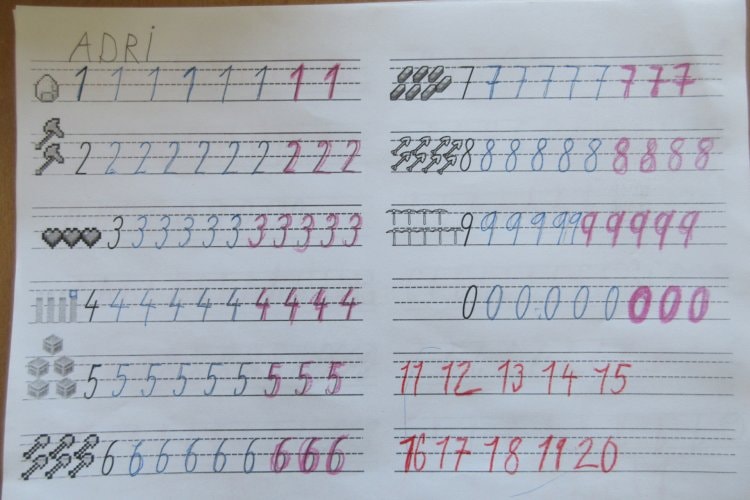 ADRİ
1 1 1 1 1 1 1 1
2 2 2 2 2 2 2 2 2 2
3 3 3 3 3 3 3 3 3 3 3
4 4 4 4 4 4 4 4 4 4
5 5 5 5 5 5 5 5 5
6 6 6 6 6 6 6 6 6
7 7 7 7 7 7 7 7 7
8 8 8 8 8 8 8 8 8 8
9 9 9 9 9 9 9 9 9 9 9
0 0 0 0 0 0 0 0 0
11 12 13 14 15
16 17 18 19 20